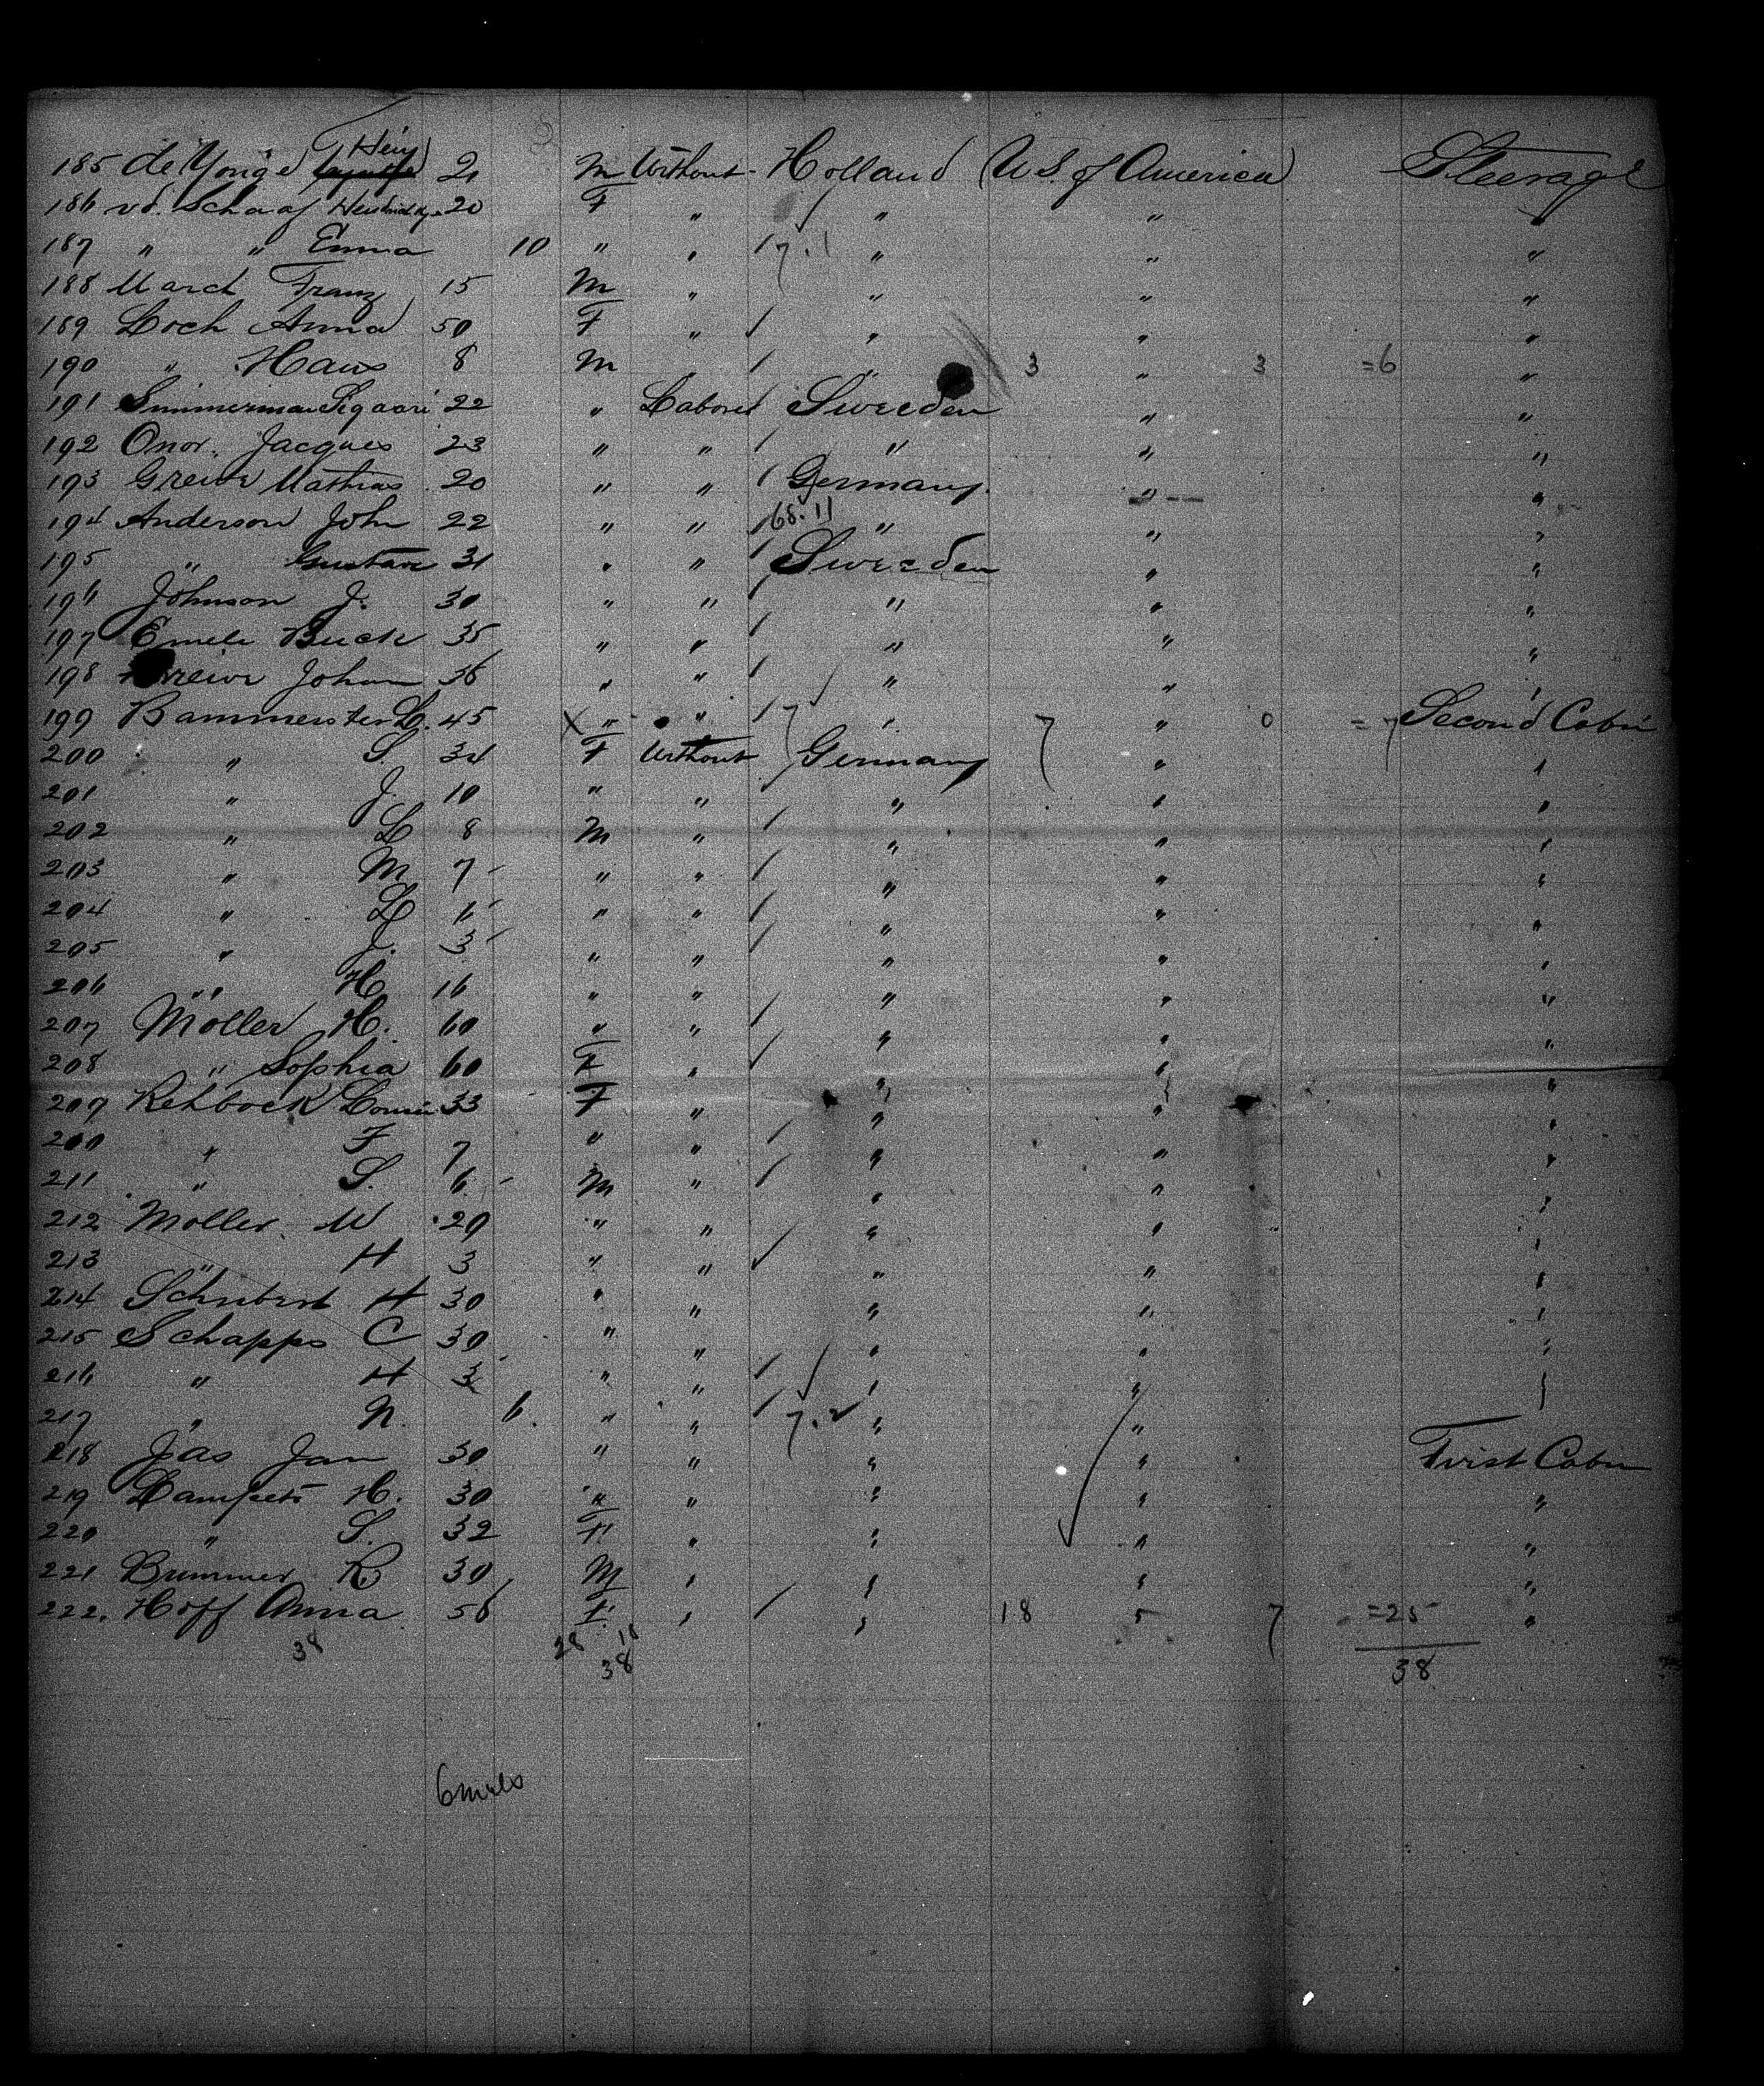 185 de Yonge Heiy 21 M Without Holland U S. of America Steerage
186 vd. Schaaf 20 F " " " "
187 " " Emma 10 " " " " "
188 March Franz 15 M " " " "
189 Loch Anna 50 F " " " "
190 " Hans 8 M " 3 " 3 =6 "
191 Simmerman 22 " Labored Sweeden " "
192 Onor. Jacques 23 " " " " "
193 Greive Mathias 20 " " Germany " "
194 Anderson John 22 " " 68.11 " " "
195 " Gustave 31 " " Sweeden " "
196 Johnson J. 30 " " " " "
197 Emele Buck 35 " " " " "
198 Johan 36 " " " " "
199 Bammeister L. 45 X " " 7 " 7 " 0 = 7 Second Cabin
200 " S. 34 F Without Germany " "
201 " J. 10 " " " " "
202 " L 8 M " " " "
203 " M 7 " " " " "
204 " L 6 " " " " "
205 " J. 3 " " " " "
206 " H 16 " " " " "
207 Moller H. 60 " " " " "
208 " Sophia 60 F " " " "
209 Rehbock 33 F " " " "
200 " F 7 " " " " "
211 " S. 6 M " " " "
212 Moller W 29 " " " " "
213 " H 3 " " " " "
214 Schubert H 30 " " " " "
215 Schapps C 30 " " " " "
216 " H 3 " " " " "
217 " N. 6. " " 7.2 " "
218 Jas Jan 30 " " " " First Cabin
219 H. 30 " " " " "
220 " S. 32 F " " " "
221 Brummer R 30 M " " " "
222. Hoff Anna 56 F " " 18 5 7 =25 "
38 28 10 38 38
6 males